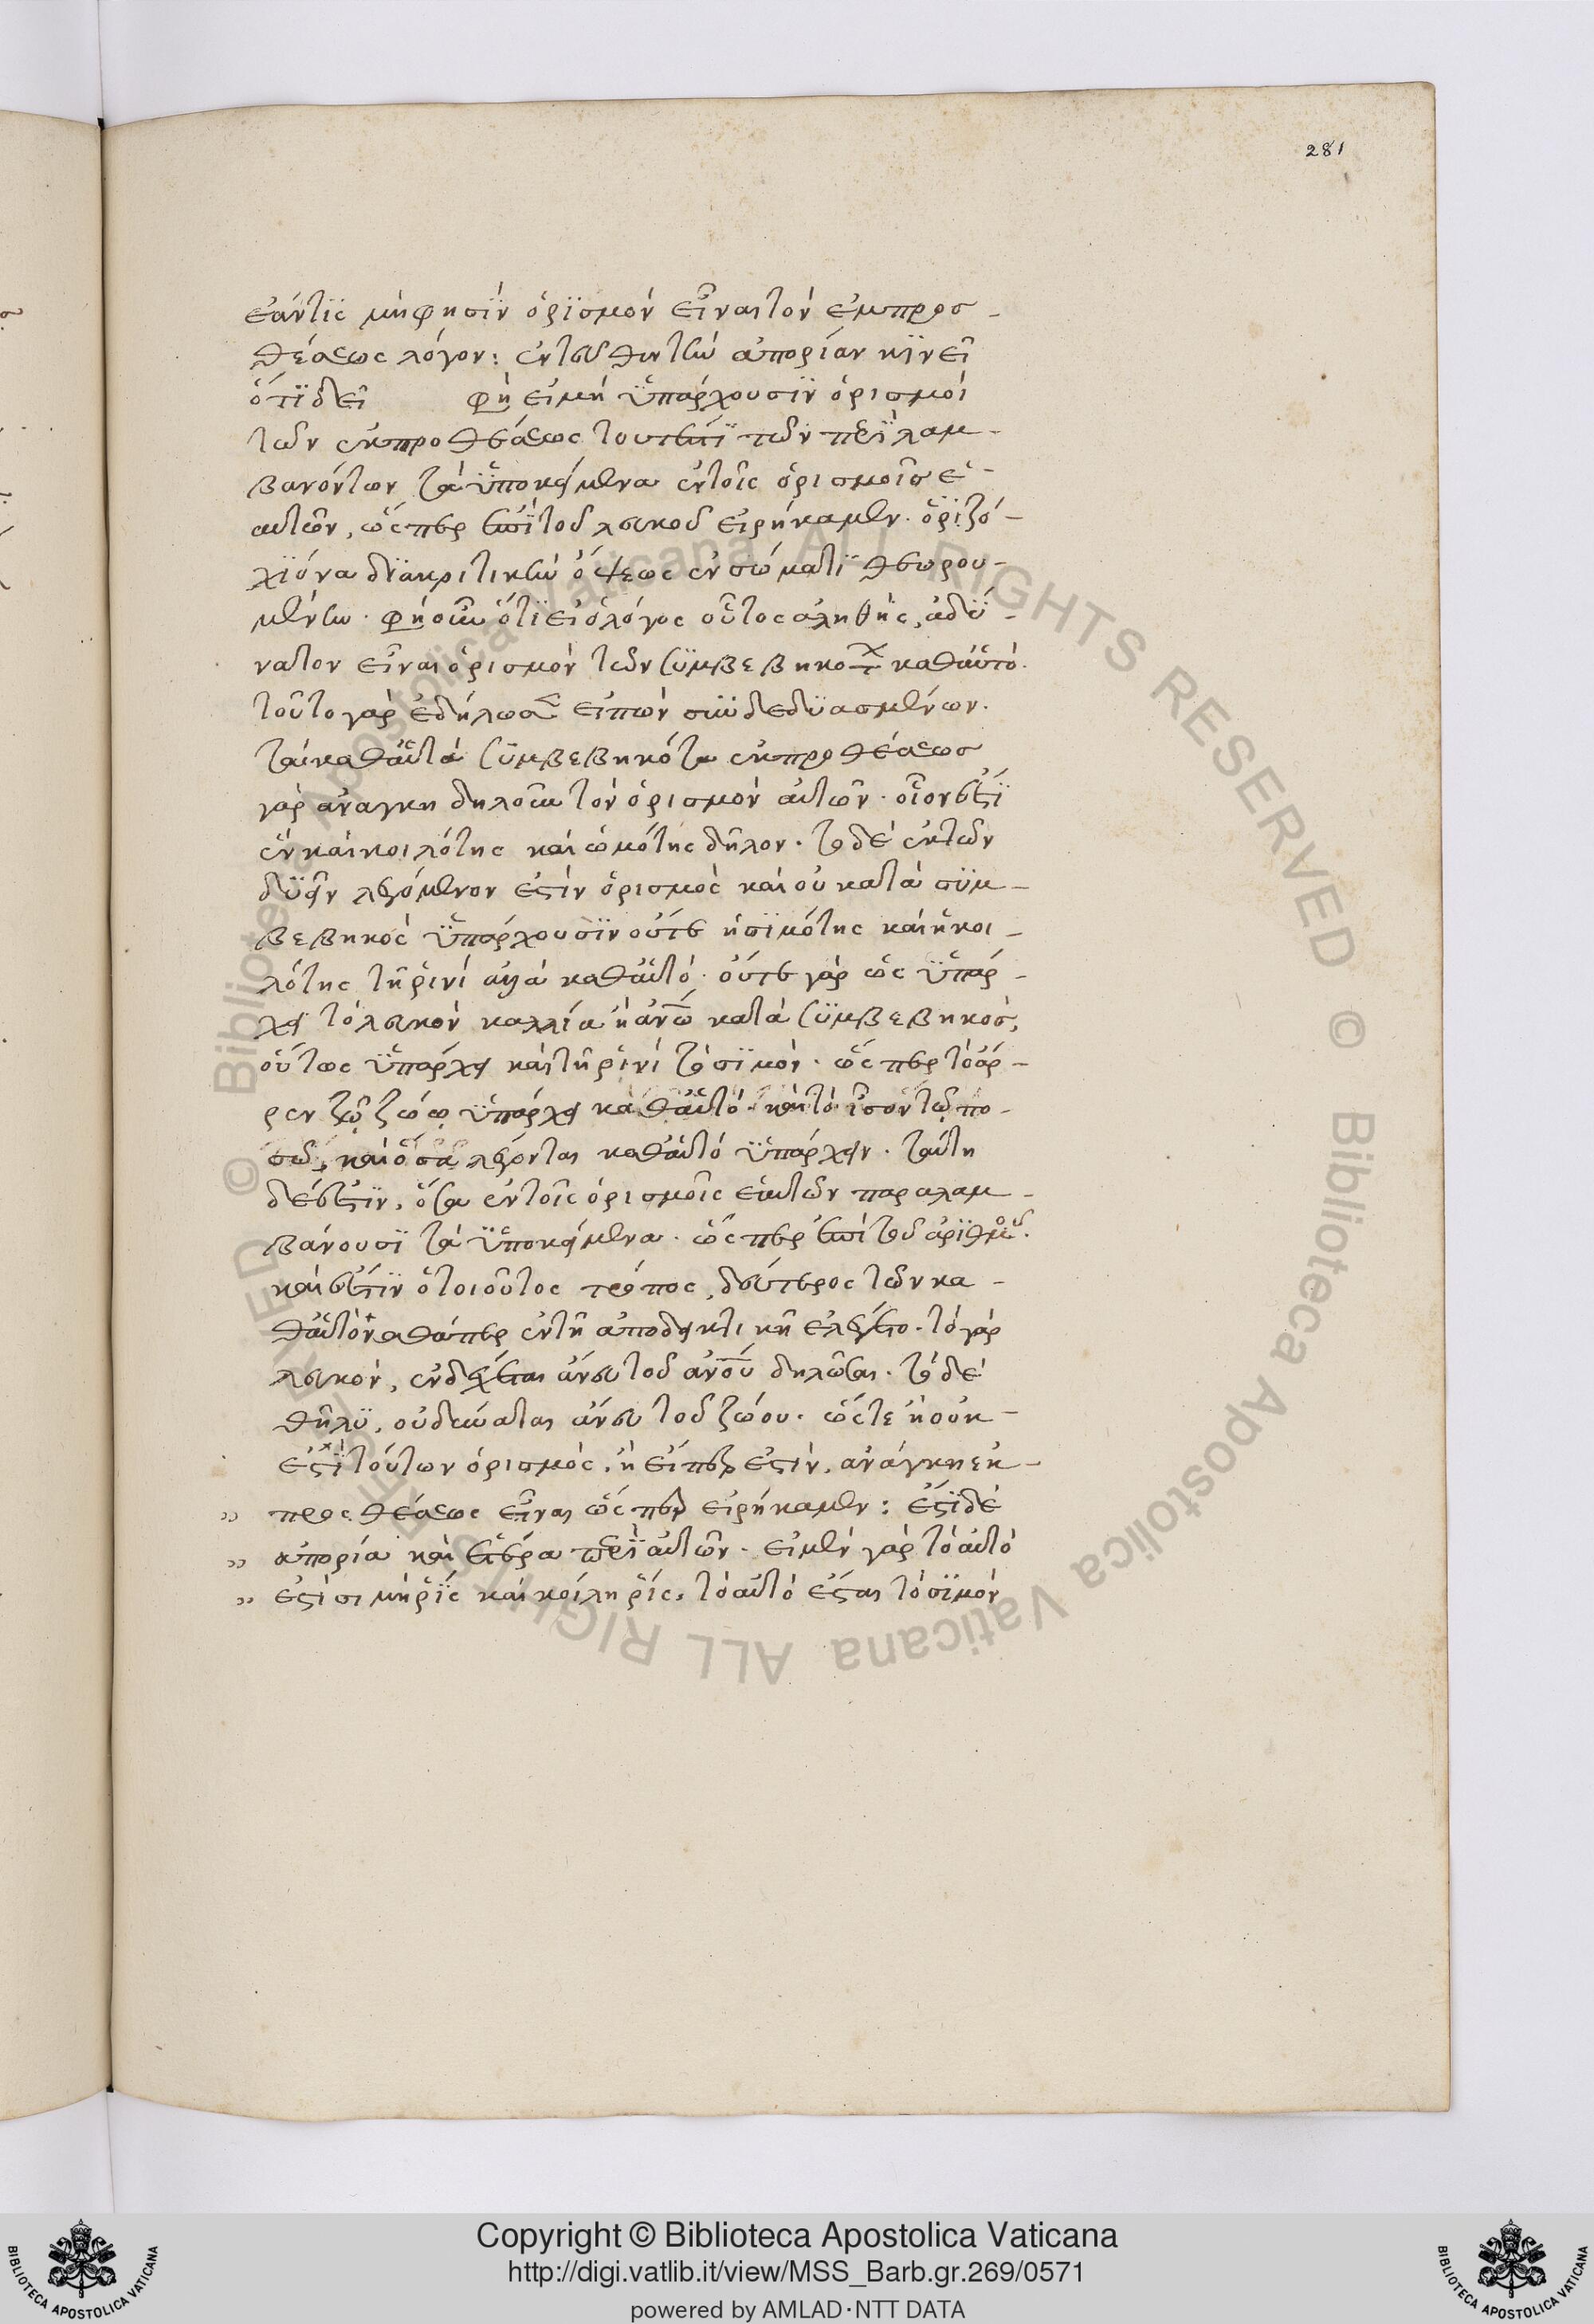 281
ἐάν τις μὴ φησὶν ὁρισμὸν εἶναι τὸν ἐμ προσ-
θέσεως λόγον: ἐντεῦθεν τὴν ἀπορίαν κινεῖ
ὅτι δεῖ φη εἰ μὴ ὑπάρχουσιν ὁρισμοὶ
τῶν ἐκ προσθέσεως τουτέστι τῶν περιλαμ-
βανόντων τὰ ὑποκείμενα ἐν τοῖς ὁρισμοῖς ἑ-
αυτῶν, ὥσπερ ἐπὶ τοῦ λευκοῦ εἰρήκαμεν. ὁριζό-
χιόνα διακριτικὴν ὄψεως ἐν σώματι θεωρου-
μένην. φη οὖν ὅτι εἰ ὁ λόγος οὗτος ἀληθής, ἀδύ-
νατον εἶναι ὁρισμὸν τῶν συμβεβηκότ καθαὑτό.
τοῦτο γὰρ ἐδήλωσεν εἰπὼν συνδεδυασμένων.
τὰ καθαὑτὰ συμβεβηκότα ἐκ προσθέσεωσ
γὰρ ἀνάγκη δηλοῦν τὸν ὁρισμὸν αὐτῶν. οἷον ἐστὶ
ἓν καὶ κοιλότης καὶ σιμότης δῆλον. τὸ δὲ ἐκ τῶν
δυεῖν λεγόμενον ἐστὶν ὁρισμὸς καὶ οὐ κατὰ συμ-
βεβηκὸς ὑπάρχουσιν οὔτε ἡ σιμότης καὶ ἡ κοι-
λότης τῇ ῥινὶ ἀλλὰ καθαὑτό. οὔτε γὰρ ὡς ὑπάρ-
χει τὸ λευκὸν καλλία ἢ ἀνῶ κατὰ συμβεβηκόσ,
οὕτως ὑπάρχει καὶ τῇ ῥινὶ τὸ σιμόν. ὥσπερ τὸ ἄρ-
ρεν τῷ ζώῳ ὑπάρχει καθαὑτό καὶ τὸ ἶσον τῷ πο-
σῷ, καὶ ὅσα λέγονται καθαὑτό ὑπάρχειν. ταύτη
δέ ἐστιν, ὅσα ἐν τοῖς ὁρισμοῖς ἑαυτῶν παραλαμ-
βάνουσι τὰ ὑποκείμενα. ὥσπερ ἐπὶ τοῦ ἀριθμοῦ.
καὶ ἐστὶν ὁ τοιοῦτος τρόπος, δεύτερος τῶν κα-
θαὑτὸ καθάπερ ἐν τῇ ἀποδεικτικῇ ἐλέγετο. τὸ γὰρ
λευκὸν, ἐνδέχεται ἄνευ τοῦ ἀνοῦ δηλῶσαι. τὸ δὲ
θῆλυ, οὐ δύναται ἄνευ τοῦ ζώου. ὥστε ἢ οὐκ-
ἐστὶ τούτων ὁρισμὸς, ἢ εἴπερ ἐστὶν, ἀνάγκη ἐκ-
προσθέσεως εἶναι ὥσπερ εἰρήκαμεν: ἔστι δὲ
ἀπορία καὶ ἑτέρα περὶ αὐτῶν. εἰ μὲν γὰρ τὸ αὐτό
ἐστι σιμὴ ῥὶς καὶ κοίλη ῥίς, τὸ αὐτὸ ἔσται τὸ σιμὸν
Copyright © Biblioteca Apostolica Vaticana
http://digi.vatlib.it/view/MSS_Barb.gr.269/0571
powered by AMLAD·NTT DATA